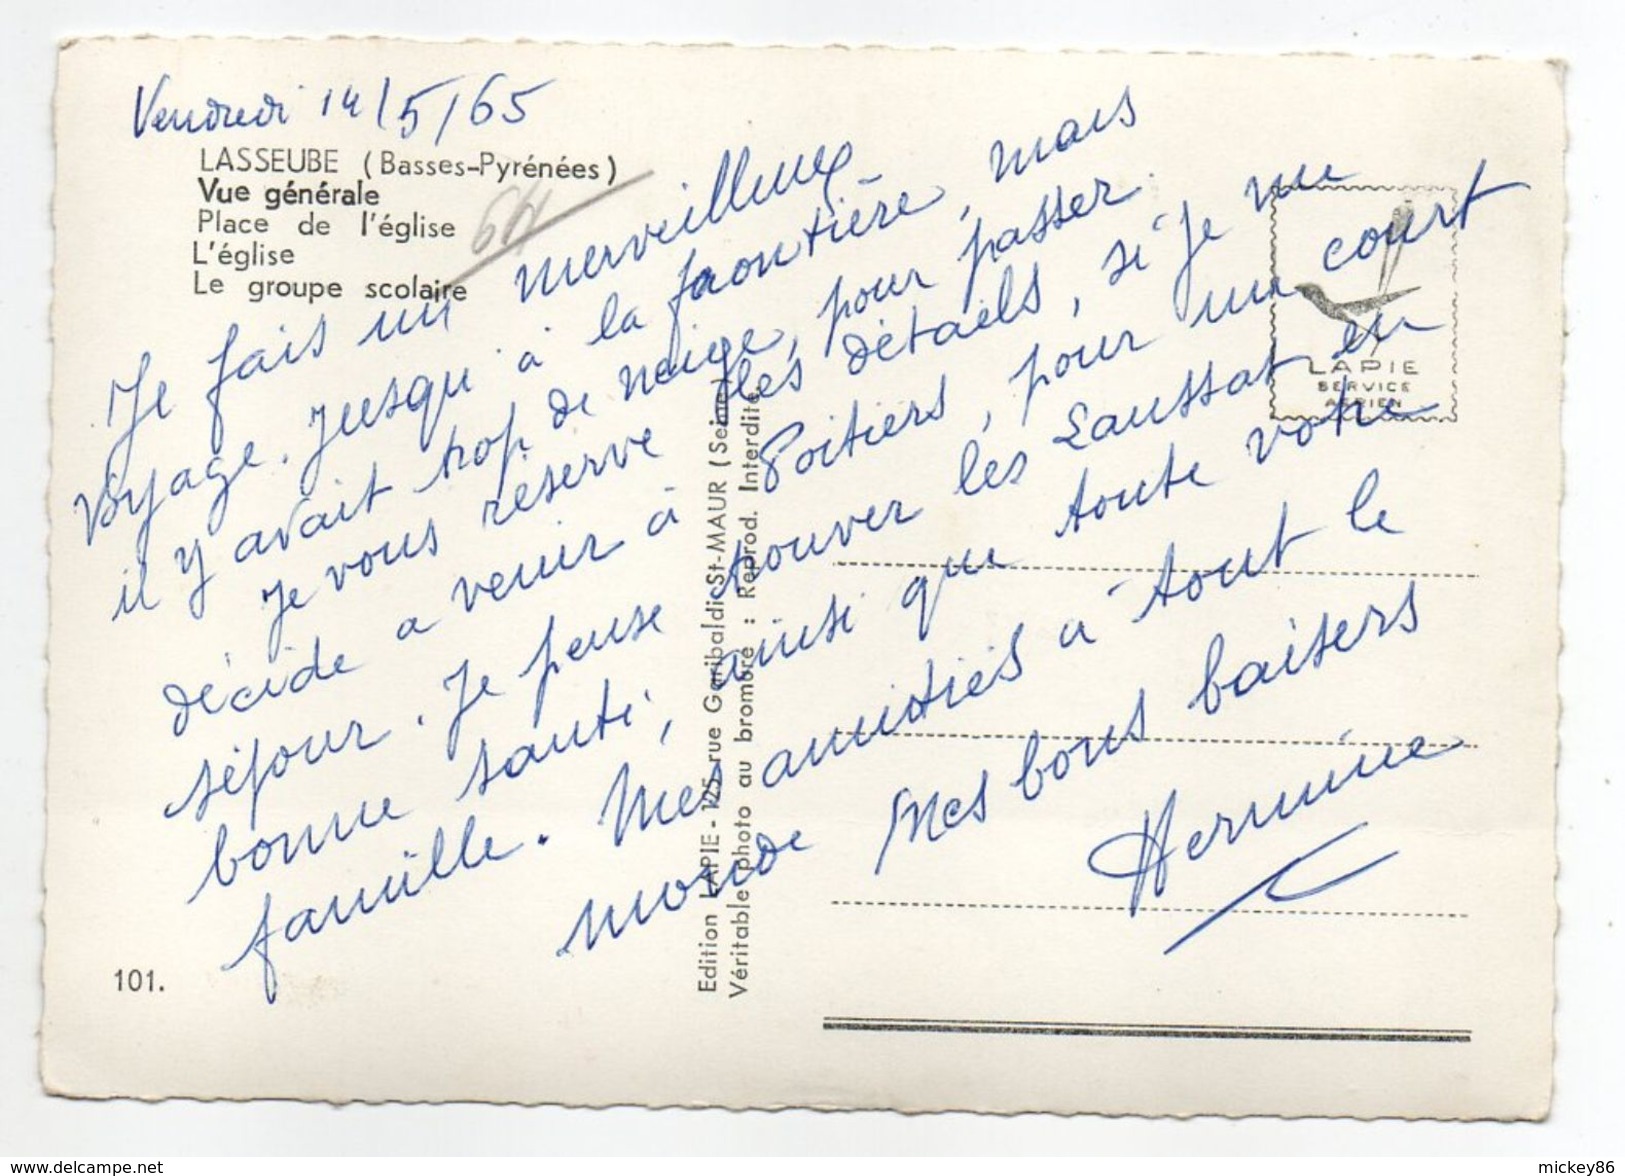 Vendredi 14/5/65
LASSEUBE (Basses-Pyrénées)
Vue générale
Place de l'église
L'église
Le groupe scolaire
64
Je fais un merveilleux
voyage. Jusqu'à la frontière, mais
il y avait trop de neige, pour passer.
Je vous réserve les détails, si je me
décide a venir à Poitiers, pour un court
séjour. Je pense trouver les Laussat en
bonne santé, ainsi que toute votre
famille. Mes amitiés à tout le
monde Mes bons baisers
Hermine
LAPIE
SERVICE
AERIEN
Edition LAPIE - 125, rue Garibaldi St-MAUR (Seine)
Véritable photo au bromure : Reprod. Interdite.
101.
http://www.delcampe.net
mickey86